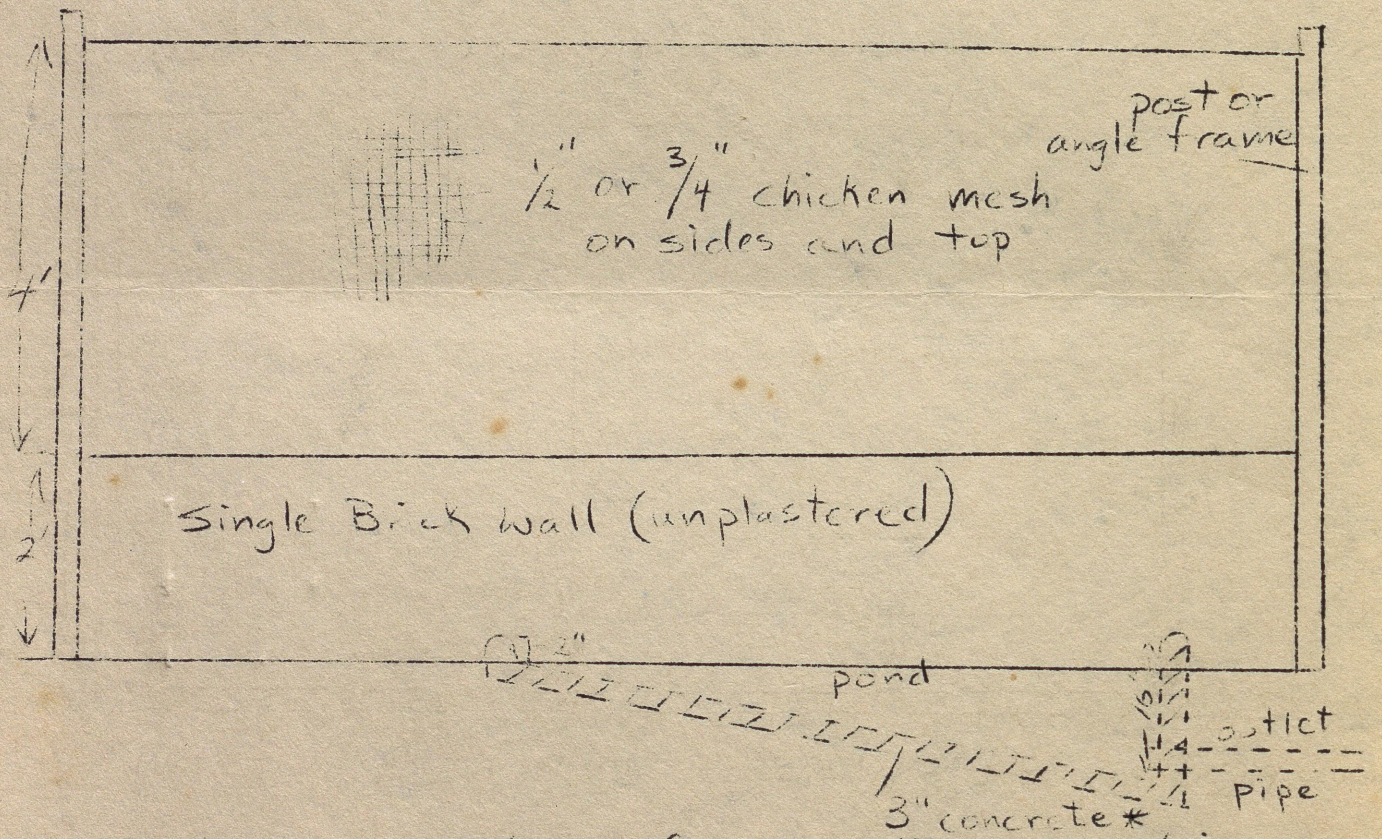 post or
angle frame
1/2" or 3/4" chicken mesh
on sides and top
4'
Single Brick wall (unplastered)
2'
2"
pond
outlet
pipe
3" concrete *